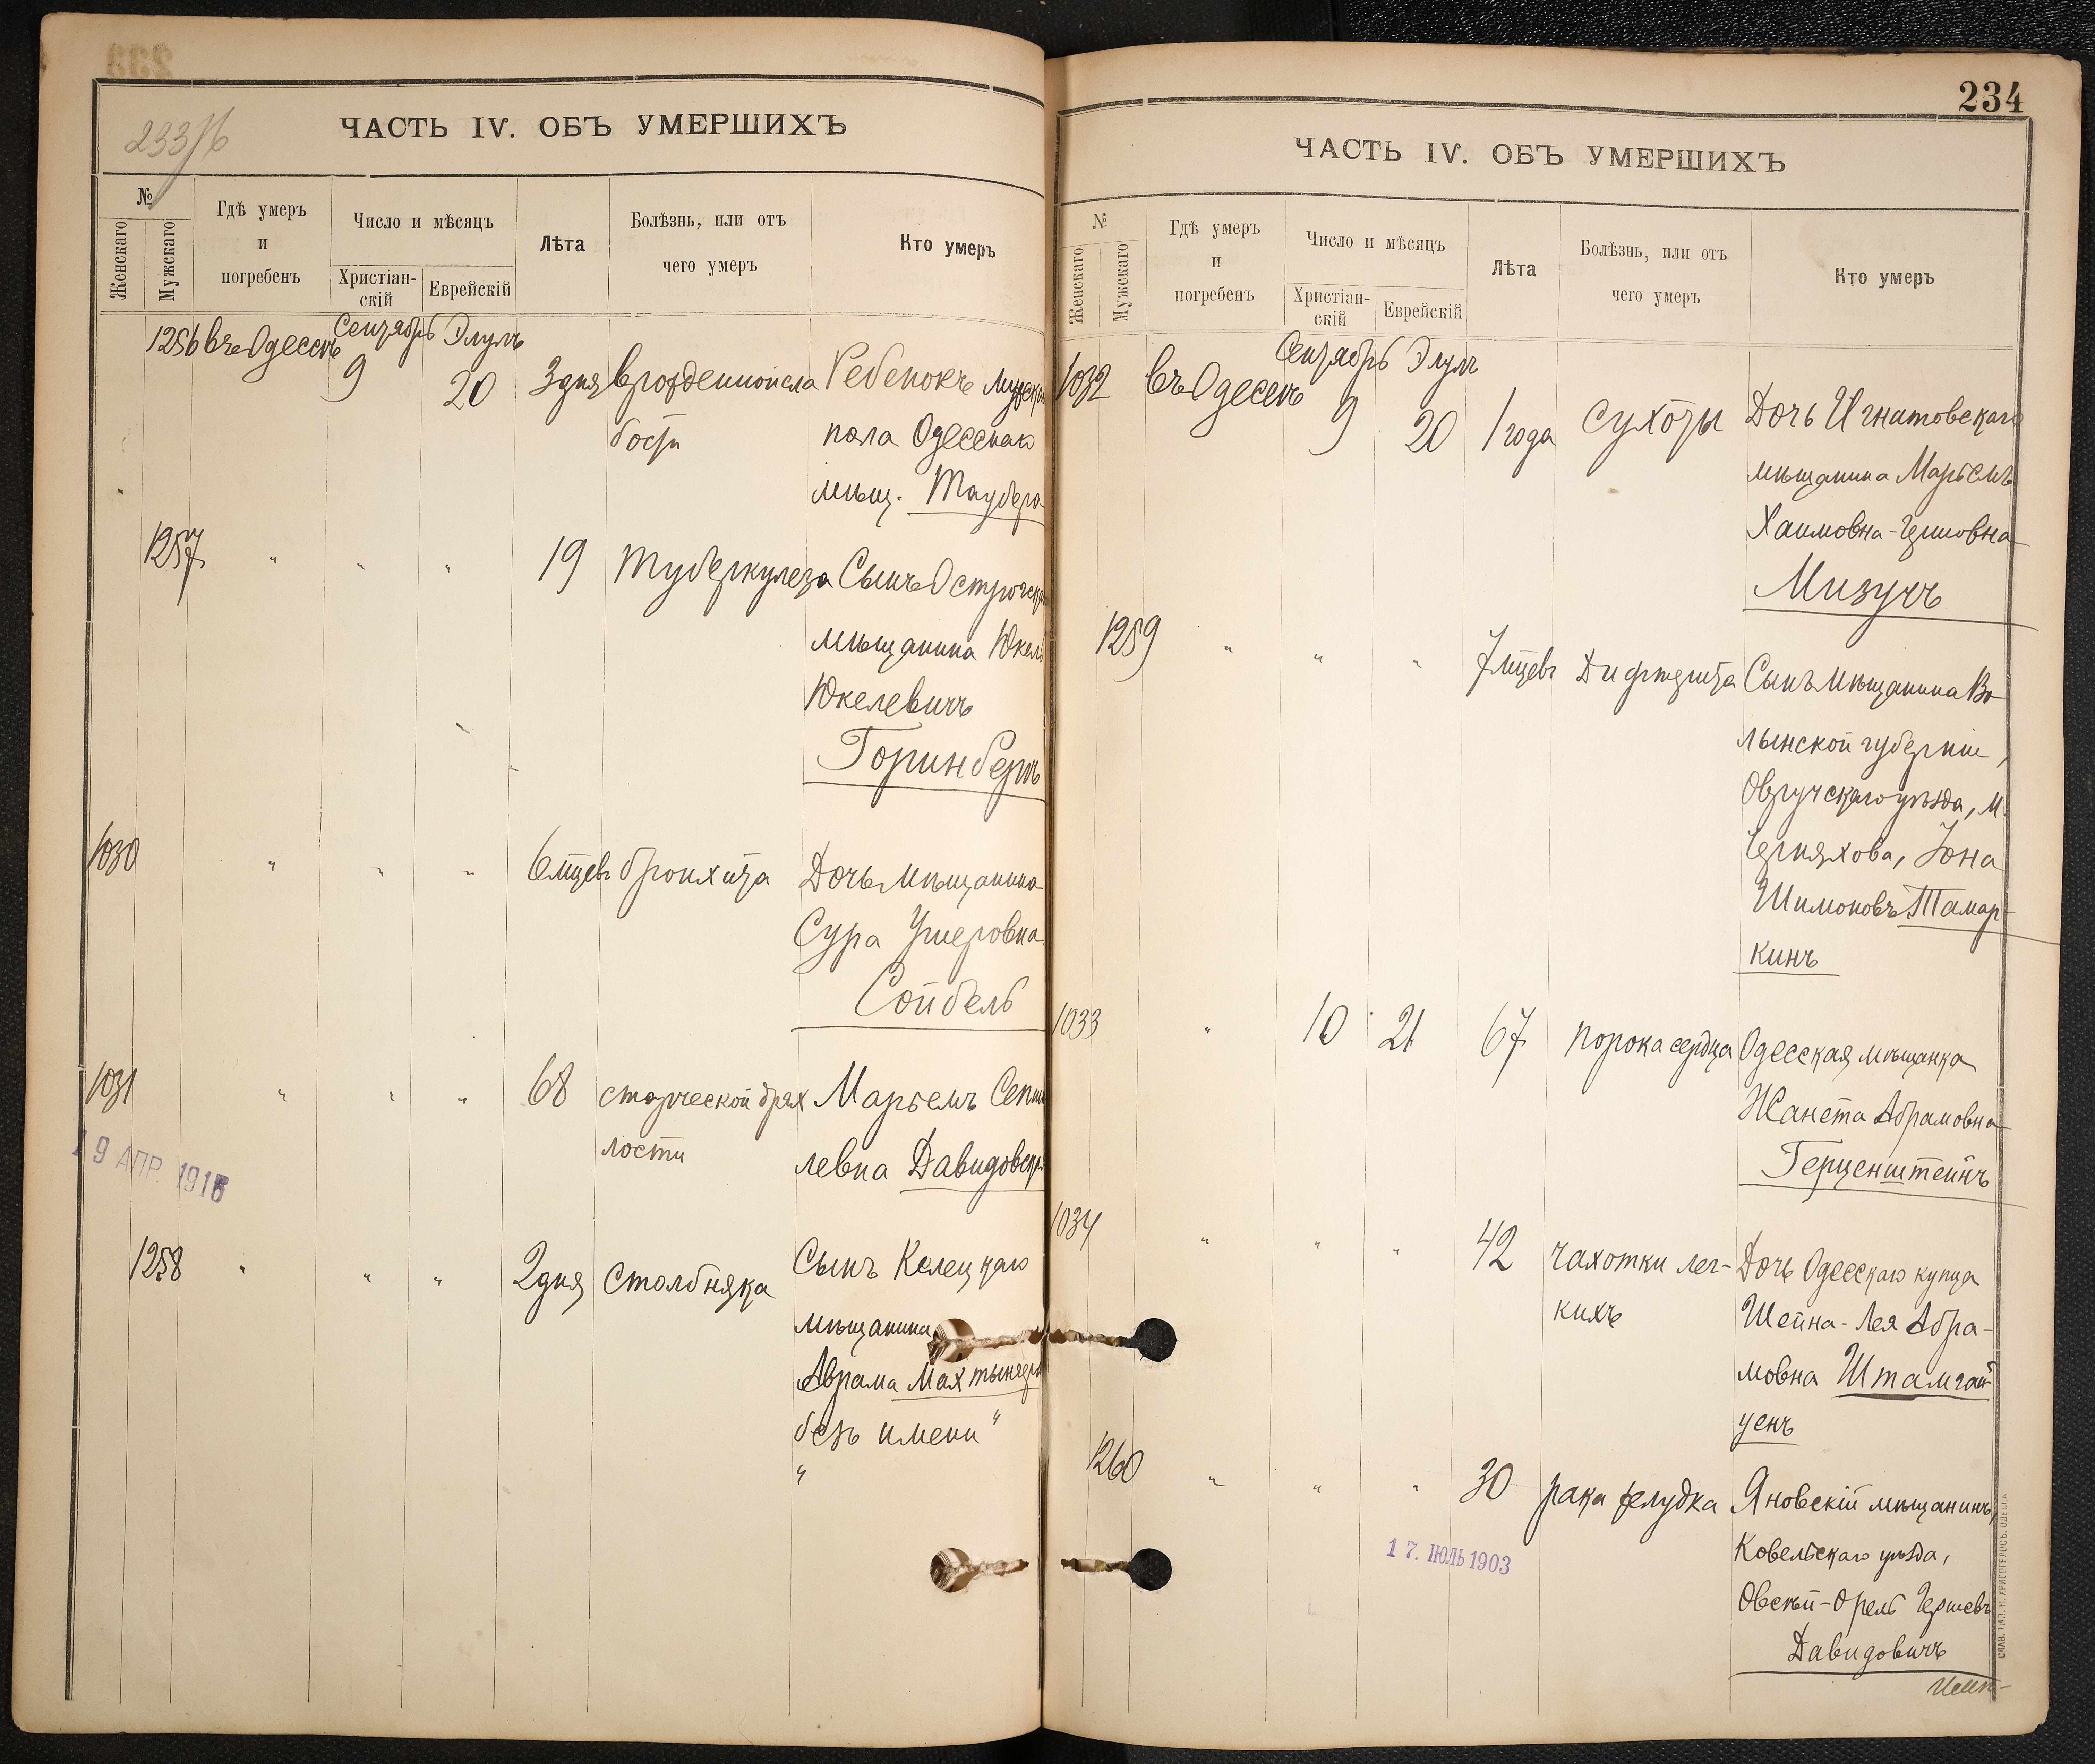 233/б
ЧАСТЬ IV. ОБЪ УМЕРШИХЪ
№
Женскаго
Мужскаго
Гдѣ умеръ
и
погребенъ
Число и мѣсяцъ
Христіан-
скій
Еврейскій
Лѣта
Болѣзнь, или отъ
чего умеръ
Кто умеръ
1256 въ Одессѣ Сентябрь Элулъ
9 20 3 дня врожденной сла Ребенокъ мужск
бости пола Одесскаго
мѣщ. Таубера
1257 " " " 19 Туберкулеза Сынъ Острогск
мѣщанина Юкель
Юкелевичъ
Горинбергъ
1030 " " " 6 мцевъ бронхита Дочь мѣщанина
Сура Ушеровна
Сойбель
1031 " " " 68 старческой дрях Марьемъ
лости левна Давидовск
19 АПР. 1916
1258 " " " 2 дня столбняка Сынъ Келецкаго
мѣщанина
Аврама
безъ имени "
"
234
ЧАСТЬ IV. ОБЪ УМЕРШИХЪ
№
Женскаго
Мужскаго
Гдѣ умеръ
и
погребенъ
Число и мѣсяцъ
Христіан-
скій
Еврейскій
Лѣта
Болѣзнь, или отъ
чего умеръ
Кто умеръ
1032 въ Одессѣ Сентябрь Элулъ
9 20 1 года сухоты Дочь Игнатовскаго
мѣщанина Марьемъ
Хаимовна-Гершовна
Мизучъ
1259 " " " 7 мцевъ Дифтерита Сынъ мѣщанина Во
лынской губерніи,
Овручскаго уѣзда, м.
Черняхова, Іона
Шимоновъ Тамар-
кинъ
1033 " 10 21 67 порока сердца Одесская мѣщанка
Жанета Абрамовна
Герценштейнъ
1034 " " " 42 чахотки лег- Дочь Одесскаго купца
кихъ Шейна-Лея Абра-
мовна Штамгай
ценъ
1260 " " " 30 рака желудка Яновскій мѣщанинъ,
Ковельскаго уѣзда,
Овсѣй-Орель Гершевъ
Давидовичъ
17. ІЮЛЬ 1903